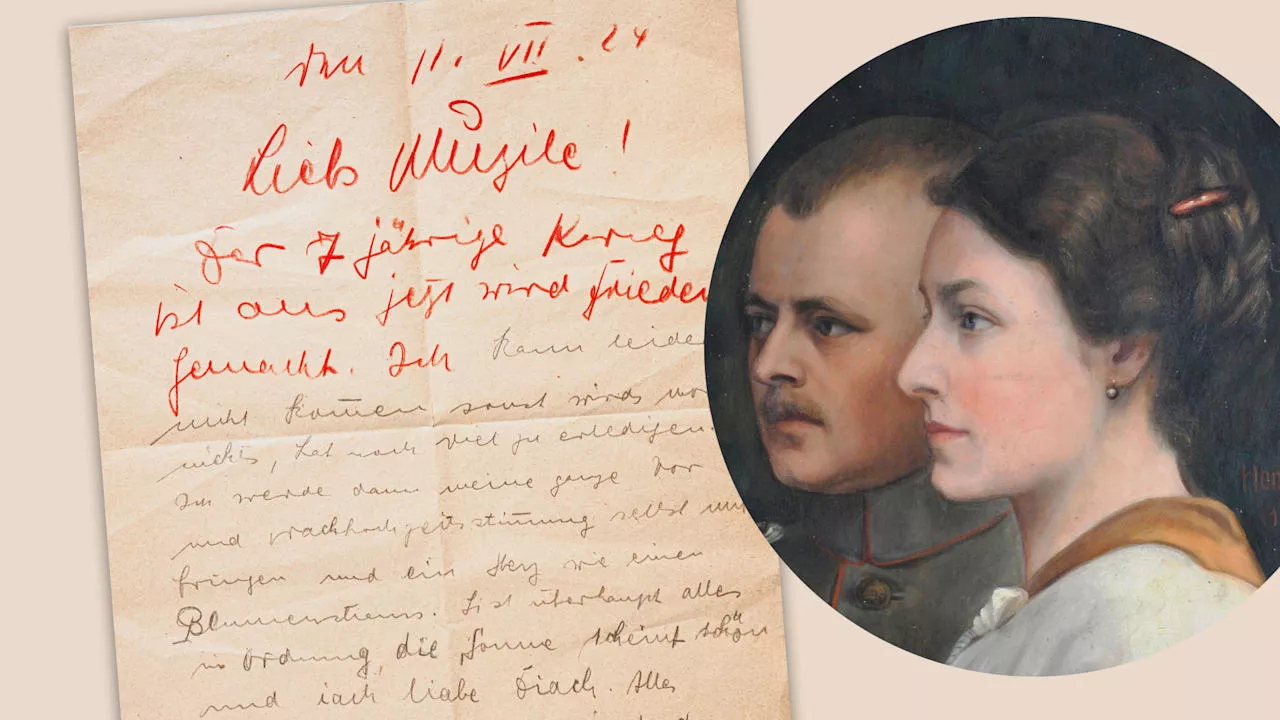 den 11. VII. 24
Liebs Muzile!
Der 7 jährige Krieg
ist aus jetzt wird Frieden
gemacht. Ich kann leider
nicht kommen sonst wirds
nichts, hat noch viel zu erledigen.
Ich werde dann meine ganze Vor
und Nachhochzeitsstimmung selbst
bringen und ein Herz wie einen
Blumenstrauss. Sist überhaupt alles
in Ordnung, die Sonne scheint schön
und iach liabe Diach. Alles